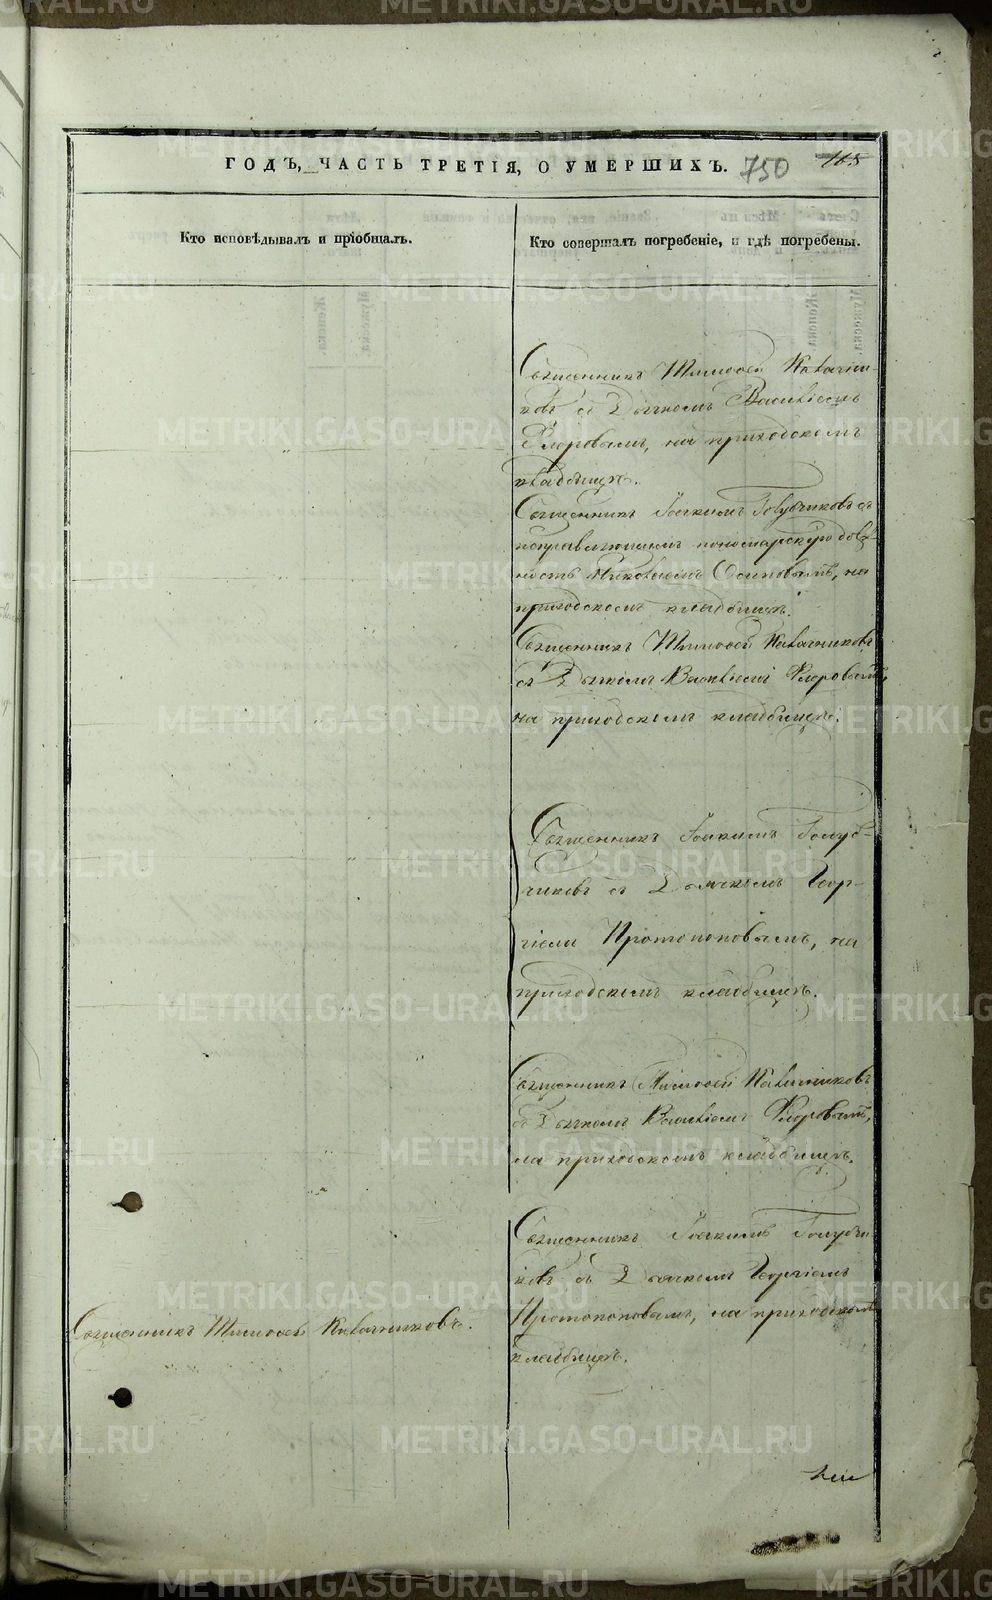 ГОДЪ, ЧАСТЬ ТРЕТІЯ, О УМЕРШИХЪ. 750 165
Кто исповѣдывалъ и пріобщалъ.
Кто совершалъ погребеніе, и гдѣ погребены.
Священникъ Тимоѳей Калачни-
ковъ съ Дьячкомъ Василіемъ
Флоровымъ, на приходскомъ
кладбищѣ.
Священникъ Іоакимъ Голубчиковъ съ
исправляющимъ пономарскую долж-
ность Николаемъ Осиповымъ, на
приходскомъ кладбищѣ.
Священникъ Тимоѳей Калачниковъ
съ Дьячкомъ Василіемъ Флоровымъ,
на приходскомъ кладбищѣ.
Священникъ Іоакимъ Голуб-
чиковъ съ Дьячкомъ Геор-
гіемъ Протопоповымъ, на
приходскомъ кладбищѣ.
Священникъ Тимоѳей Калачниковъ
съ Дьячкомъ Василіемъ Флоровымъ,
на приходскомъ кладбищѣ.
Священникъ Іоакимъ Голубчи-
ковъ съ Дьячкомъ Георгіемъ
Протопоповымъ, на приходскомъ
кладбищѣ.
Священникъ Тимоѳей Калачниковъ.
METRIKI.GASO-URAL.RU